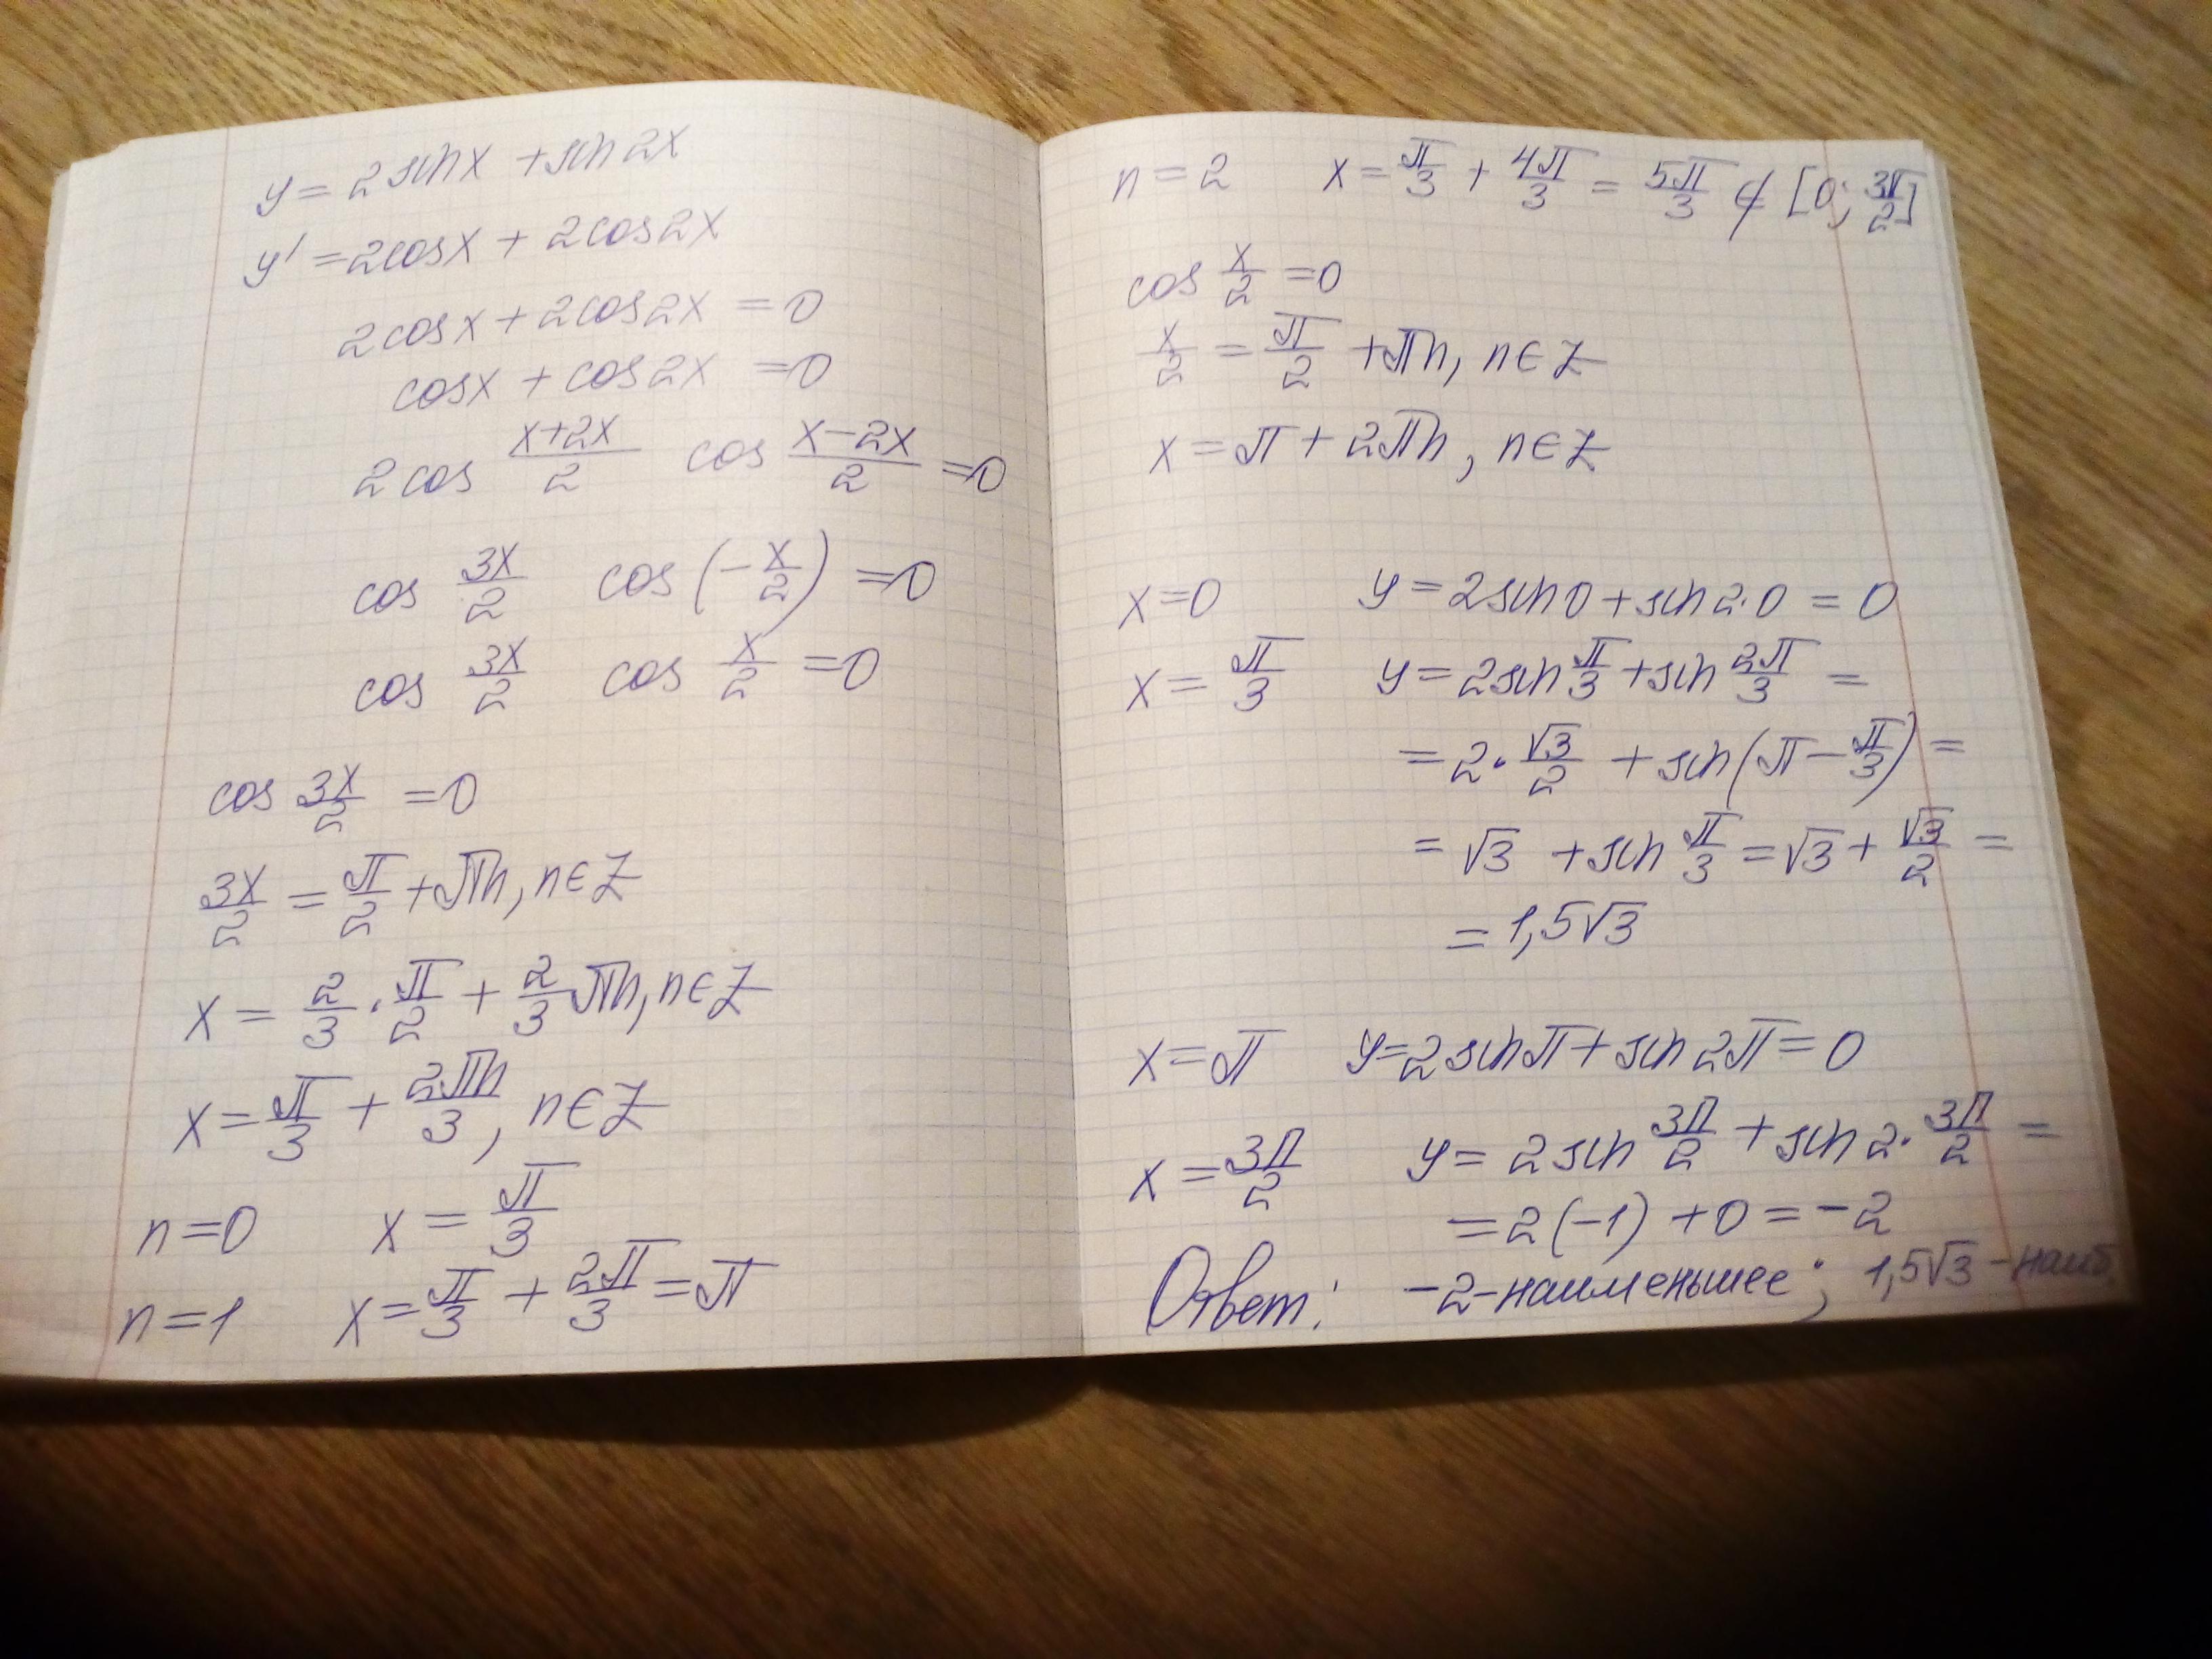 y = 2 sin x + sin 2x
y' = 2cos x + 2cos 2x
2cos x + 2cos 2x = 0
cos x + cos 2x = 0
2 cos (x+2x)/2 cos (x-2x)/2 = 0
cos 3x/2 cos (-x/2) = 0
cos 3x/2 cos x/2 = 0
cos 3x/2 = 0
3x/2 = π/2 + πn, n∈Z
x = 2/3 · π/2 + 2/3 πn, n∈Z
x = π/3 + 2πn/3, n∈Z
n = 0 x = π/3
n = 1 x = π/3 + 2π/3 = π
n = 2 x = π/3 + 4π/3 = 5π/3 ∉ [0; 3π/2]
cos x/2 = 0
x/2 = π/2 + πn, n∈Z
x = π + 2πn, n∈Z
x = 0 y = 2 sin 0 + sin 2·0 = 0
x = π/3 y = 2 sin π/3 + sin 2π/3 =
= 2 · √3/2 + sin (π - π/3) =
= √3 + sin π/3 = √3 + √3/2 =
= 1,5√3
x = π y = 2 sin π + sin 2π = 0
x = 3π/2 y = 2 sin 3π/2 + sin 2 · 3π/2 =
= 2(-1) + 0 = -2
Ответ: -2 - наименьшее; 1,5√3 - наиб.